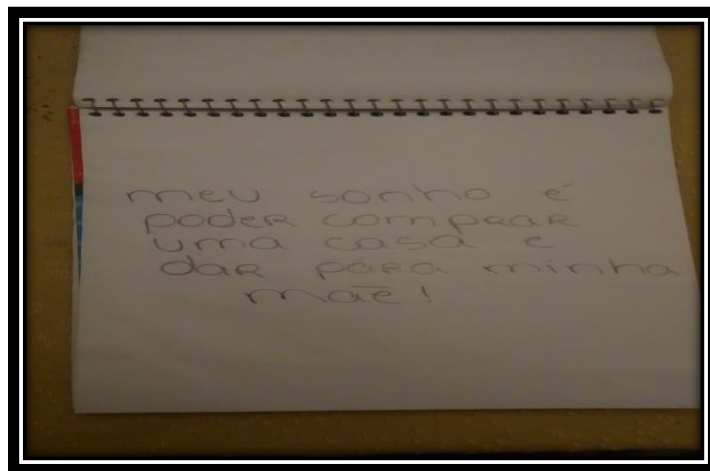 meu sonho é
poder comprar
uma casa e
dar para minha
mãe!